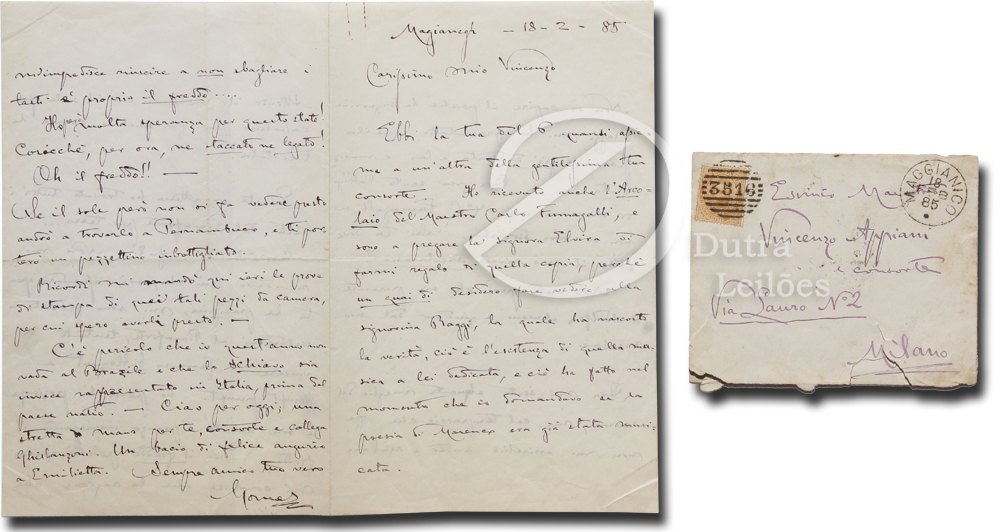 Magianegh - 18 - 2 - 85
Carissimo mio Vincenzo
Ebbi la tua del 6 quasi assie-
me a un'altra della gentilissima tua
consorte. Ho ricevuto anche l'Arco-
laio del Maestro Carlo Fumagalli, e
sono a pregare la signora Elvira di
farmi regalo di quella copia, perchè
un quai dì desidero fare vedere alla
signorina Baggi, la quale ha nascosto
la verità, cioè l'esistenza di quella mu-
sica a lei dedicata, e ciò ha fatto nel
momento che io domandavo se la
poesia di Marenco era già stata musi-
cata.
riuscire a non sbagliare i
tasti è proprio il freddo ....
Ho molta speranza per quest'estate!
Cosicchè, per ora, ne staccato ne legato!
Oh il freddo!! —
Se il sole però non si fa vedere presto
andrò a trovarlo a Pernambuco, e ti por-
terò un pezzettino imbottigliato.
Ricordi mi mandò qui ieri le prove
di stampa di quei tali pezzi da camera,
per cui spero averli presto. —
C'è pericolo che io quest'anno non
vada al Brazile e che lo Schiavo sia
invece rappresentato in Italia, prima del
paese natio. — Ciao per oggi; una
stretta di mano per te, consorte e collega
Ghislanzoni. Un bacio di felice augurio
a Ermilietta. Sempre amico tuo vero
Gomes
3516
MAGGIANICO
18
85
Vincenzo Appiani
e consorte
Via Lauro N° 2
Milano
Dutra
Leilões